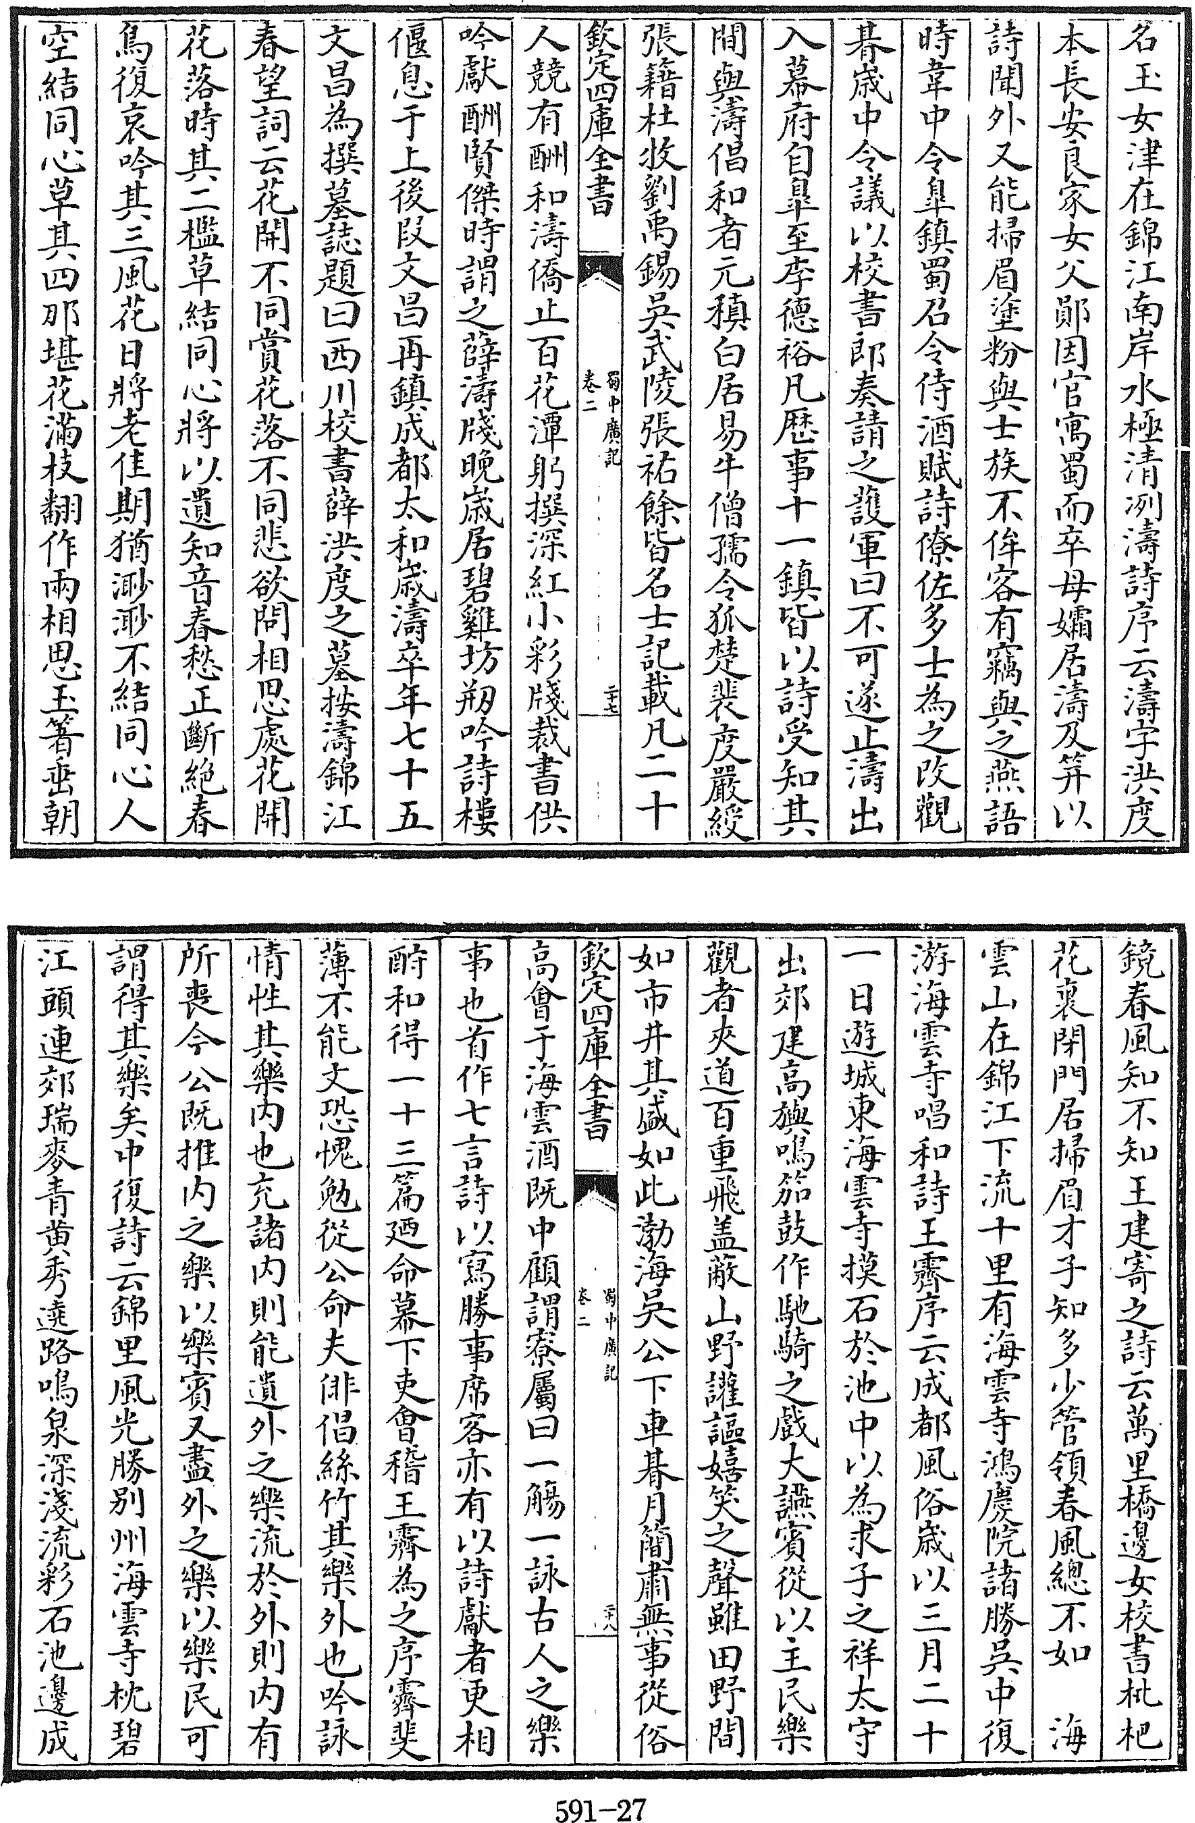 名玉女津在錦江南岸水極清冽濤詩序云濤字洪度
本長安良家女父鄖因官寓蜀而卒母孀居濤及笄以
詩聞外又能掃眉塗粉與士族不侔客有竊與之燕語
時韋中令臯鎮蜀召令侍酒賦詩僚佐多士為之改觀
朞歲中令議以校書郎奏請之䕶軍曰不可遂止濤出
入幕府自臯至李德裕凡歷事十一鎮皆以詩受知其
間與濤倡和者元稹白居易牛僧孺令狐楚裴度嚴綬
張籍杜牧劉禹錫吳武陵張祐餘皆名士記載凡二十
欽定四庫全書
蜀中廣記
卷二
二十七
人競有酬和濤僑止百花潭躬撰深紅小彩牋裁書供
吟獻酬賢傑時謂之薛濤牋晚歲居碧雞坊剏吟詩樓
偃息于上後段文昌再鎮成都太和歲濤卒年七十五
文昌為撰墓誌題曰西川校書薛洪度之墓按濤錦江
春望詞云花開不同賞花落不同悲欲問相思處花開
花落時其二檻草結同心將以遺知音春愁正斷絶春
鳥復哀吟其三風花日將老佳期猶渺渺不結同心人
空結同心草其四那堪花滿枝翻作兩相思玉箸垂朝
鏡春風知不知王建寄之詩云萬里橋邊女校書枇杷
花裏閉門居掃眉才子知多少管領春風總不如 海
雲山在錦江下流十里有海雲寺鴻慶院諸勝吳中復
游海雲寺唱和詩王霽序云成都風俗歲以三月二十
一日遊城東海雲寺摸石於池中以為求子之祥太守
出郊建高旟鳴笳鼓作馳騎之戲大讌賓從以主民樂
觀者夾道百重飛盖蔽山野讙謳嬉笑之聲雖田野間
如市井其盛如此渤海吳公下車朞月簡肅無事從俗
欽定四庫全書
蜀中廣記
卷二
二十八
高會于海雲酒既中顧謂寮屬曰一觴一詠古人之樂
事也首作七言詩以寫勝事席客亦有以詩獻者更相
酧和得一十三篇廼命幕下吏會稽王霽為之序霽斐
薄不能文恐愧勉從公命夫俳倡絲竹其樂外也吟詠
情性其樂内也充諸内則能遺外之樂流於外則内有
所喪今公既推内之樂以樂賓又盡外之樂以樂民可
謂得其樂矣中復詩云錦里風光勝别州海雲寺枕碧
江頭連郊瑞麥青黄秀遶路鳴泉深淺流彩石池邊成
591-27